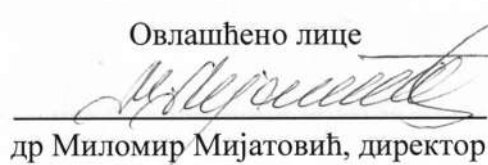 Овлашћено лице
др Миломир Мијатовић, директор